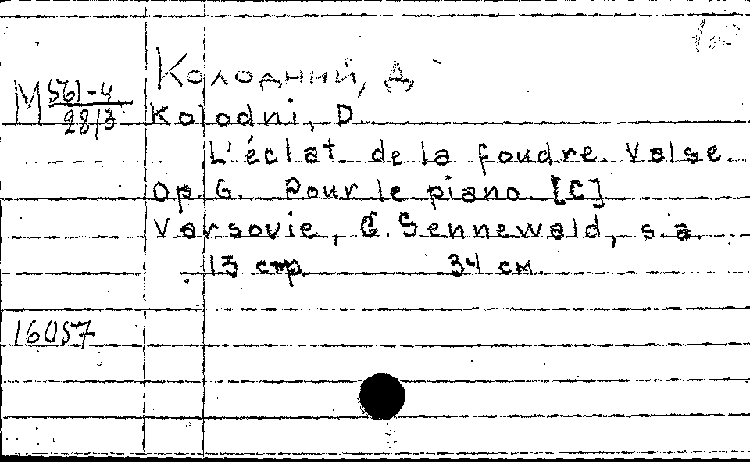 Колодний, Д
М 561-4
28/3
Kolodni, D.
L'éclat de la foudre. Valse.
Op. 6. Pour le piano. [C]
Varsovie, G. Sennewald, s.a.
13 стр. 34 см.
16057